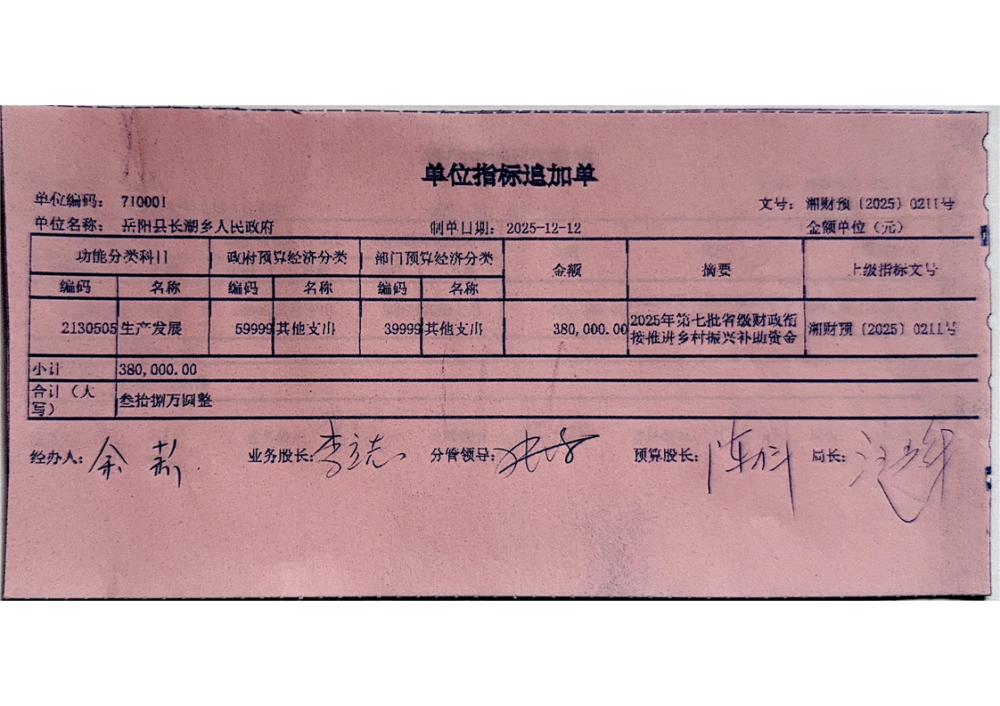 单位指标追加单
单位编码： 710001 文号： 湘财预〔2025〕0211号
单位名称： 岳阳县长湖乡人民政府 制单日期： 2025-12-12 金额单位（元）
功能分类科目 政府预算经济分类 部门预算经济分类 金额 摘要 上级指标文号
编码 名称 编码 名称 编码 名称
2130505 生产发展 59999 其他支出 39999 其他支出 380,000.00 2025年第七批省级财政衔 湘财预〔2025〕0211号
接推进乡村振兴补助资金
小计 380,000.00
合计（大
写） 叁拾捌万圆整
经办人： 余 业务股长： 李志 分管领导： 预算股长： 陈 局长：